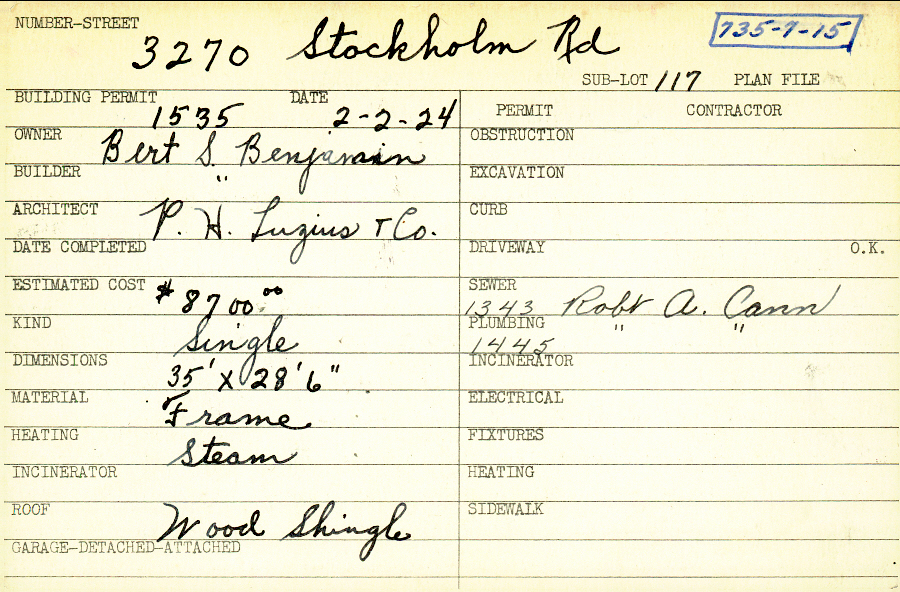 NUMBER-STREET
3270 Stockholm Rd
735-7-15
SUB-LOT 117 PLAN FILE
BUILDING PERMIT 1535 DATE 2-2-24
OWNER Bert S. Benjamin
BUILDER "
ARCHITECT P. H. Luzius + Co.
DATE COMPLETED
ESTIMATED COST $8700⁰⁰
KIND Single
DIMENSIONS 35' X 28'6"
MATERIAL Frame
HEATING Steam
INCINERATOR
ROOF Wood Shingle
GARAGE-DETACHED-ATTACHED
PERMIT CONTRACTOR
OBSTRUCTION
EXCAVATION
CURB
DRIVEWAY O.K.
SEWER
1343 Robt A. Cann
PLUMBING " "
1445
INCINERATOR
ELECTRICAL
FIXTURES
HEATING
SIDEWALK